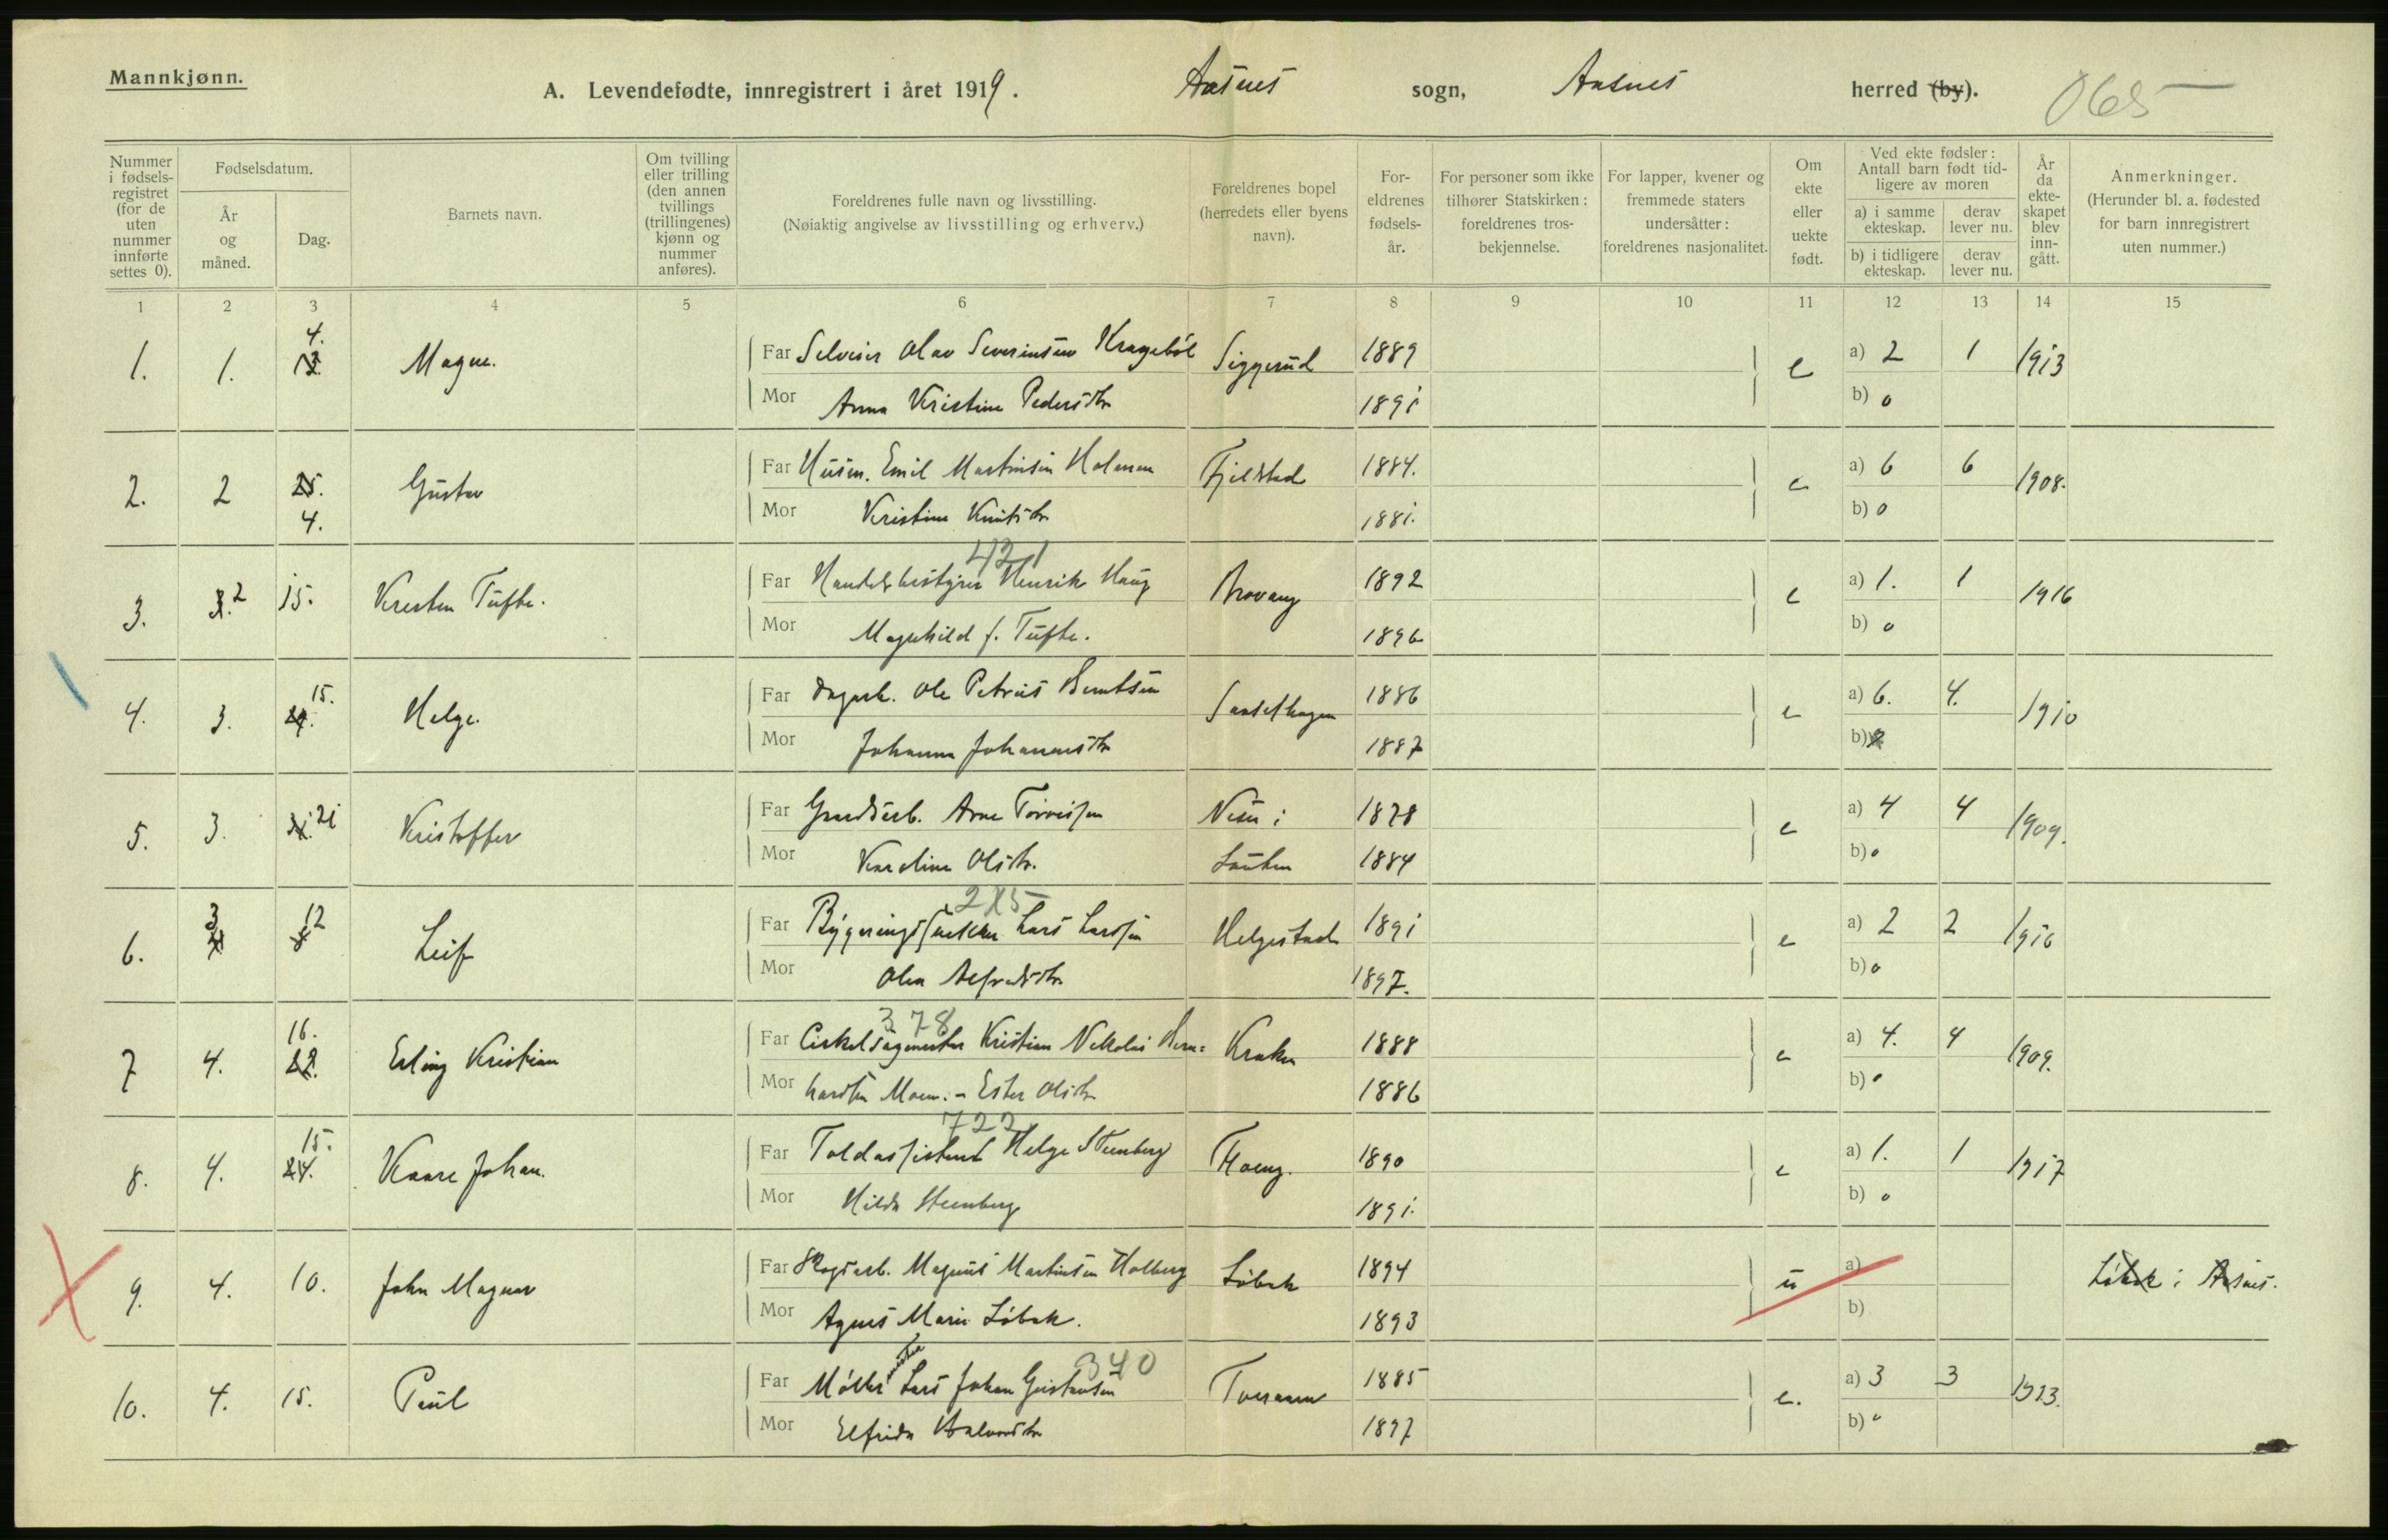 Mannkjønn.
A. Levendefødte, innregistrert i året 1919. Aasnes sogn, Aasnes herred (by). 065
Nummer i fødsels-registret (for de uten nummer innførte settes 0).
Fødselsdatum.
År og måned.
Dag.
Barnets navn.
Om tvilling eller trilling (den annen tvillings (trillingenes) kjønn og nummer anføres).
Foreldrenes fulle navn og livsstilling.
(Nøiaktig angivelse av livsstilling og erhverv.)
Foreldrenes bopel (herredets eller byens navn).
For-eldrenes fødsels-år.
For personer som ikke tilhører Statskirken: foreldrenes tros-bekjennelse.
For lapper, kvener og fremmede staters undersåtter: foreldrenes nasjonalitet.
Om ekte eller uekte født.
Ved ekte fødsler: Antall barn født tid-ligere av moren
a) i samme ekteskap.
derav lever nu.
b) i tidligere ekteskap.
derav lever nu.
År da ekte-skapet blev inn-gått.
Anmerkninger.
(Herunder bl. a. fødested for barn innregistrert uten nummer.)
1 2 3 4 5 6 7 8 9 10 11 12 13 14 15
1. 1. 4. Magne. Far Selveier Olav Severinsen Kragebøl Siggerud 1889 e a) 2 1 1913
Mor Anna Kristine Pedersdtr 1891 b) 0
2. 2 25. 4. Gustav Far Husm. Emil Martinsen Holmen Fjelstad 1884. e a) 6 6 1908.
Mor Kristine Knutsdtr 1881. b) 0
421
3. 3. 2 15. Kresten Tufte. Far Handelsbestyrer Henrik Haug 1892 e a) 1. 1 1916
Mor Magnhild f. Tufte. 1896 b) 0
4. 3. 15. Helge. Far Dagarb. Ole Petrus Berntsen 1886 e a) 6. 4. 1910
Mor Johanne Johannesdtr 1887 b)
5. 3. 21 Kristoffer Far Gaardsarb. Arne 1878 e a) 4 4 1909.
Mor Karoline Olsdtr. 1884 b) 0
215
6. 3 12 Leif Far Bygningssnekker Lars Larssen Helgestad 1891 e a) 2 2 1916
Mor Olea Alfredsdtr 1897. b) 0
378
7 4. 16. 22. Erling Kristian Far Cirkelsagmester Kristian Nikolai Bern= Kraken 1888 e a) 4. 4 1909.
Mor hardsen Moen. - Ester Olsdtr 1886 b) 0
722
8. 4. 15. 24. Kaare Johan. Far Toldassistent Helge Steenberg 1890 e a) 1. 1 1917
Mor Hilda Steenberg 1891. b) 0
9. 4. 10. John Magnar Far Skogsarb. Magnus Martinsen Holberg Løbak 1894 u a) Løbak i Aasnes.
Mor Agnes Marie Løbak. 1893 b)
340
10. 4. 15. Paul Far Møller Lars Johan Gustavsen 1885 e. a) 3 3 1913.
Mor Elfrida Halvordtr 1897 b) 0